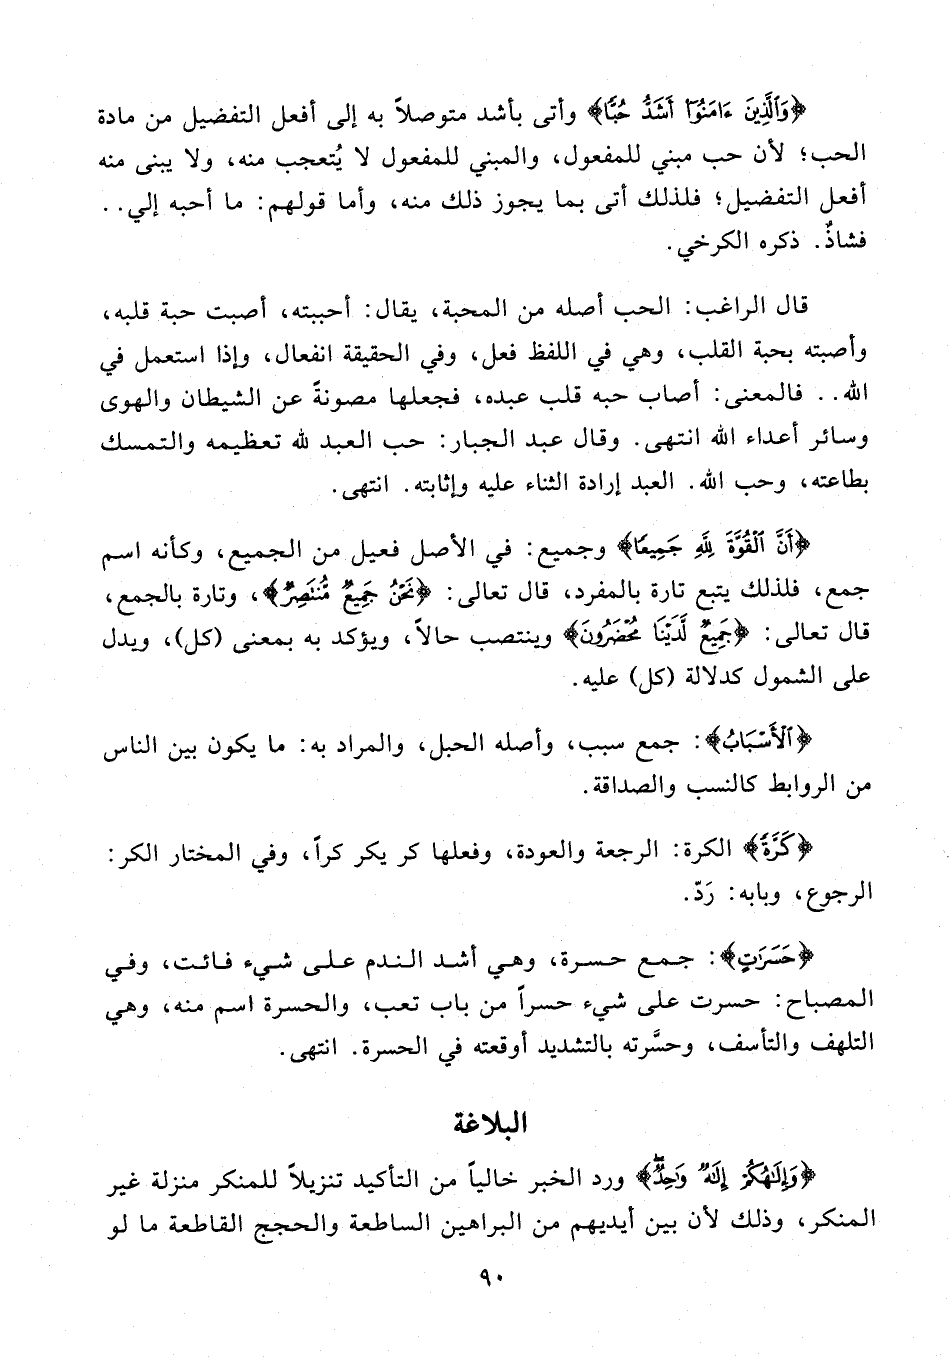 ﴿وَٱلَّذِينَ ءَامَنُوٓا۟ أَشَدُّ حُبًّا﴾ وأتى بأشد متوصلاً به إلى أفعل التفضيل من مادة
الحب؛ لأن حب مبني للمفعول، والمبني للمفعول لا يُتعجب منه، ولا يبنى منه
أفعل التفضيل؛ فلذلك أتى بما يجوز ذلك منه، وأما قولهم: ما أحبه إلي..
فشاذٌ. ذكره الكرخي.
قال الراغب: الحب أصله من المحبة، يقال: أحببته، أصبت حبة قلبه،
وأصبته بحبة القلب، وهي في اللفظ فعل، وفي الحقيقة انفعال، وإذا استعمل في
الله.. فالمعنى: أصاب حبه قلب عبده، فجعلها مصونةً عن الشيطان والهوى
وسائر أعداء الله انتهى. وقال عبد الجبار: حب العبد لله تعظيمه والتمسك
بطاعته، وحب الله. العبد إرادة الثناء عليه وإثابته. انتهى.
﴿أَنَّ ٱلْقُوَّةَ لِلَّهِ جَمِيعًا﴾ وجميع: في الأصل فعيل من الجميع، وكأنه اسم
جمع، فلذلك يتبع تارة بالمفرد، قال تعالى: ﴿نَحْنُ جَمِيعٌ مُّنتَصِرٌ﴾، وتارة بالجمع،
قال تعالى: ﴿جَمِيعٌ لَّدَيْنَا مُحْضَرُونَ﴾ وينتصب حالاً، ويؤكد به بمعنى (كل)، ويدل
على الشمول كدلالة (كل) عليه.
﴿ٱلْأَسْبَابُ﴾: جمع سبب، وأصله الحبل، والمراد به: ما يكون بين الناس
من الروابط كالنسب والصداقة.
﴿كَرَّةً﴾ الكرة: الرجعة والعودة، وفعلها كر يكر كراً، وفي المختار الكر:
الرجوع، وبابه: رَدّ.
﴿حَسَرَٰتٍ﴾: جمع حسرة، وهي أشد الندم على شيء فائت، وفي
المصباح: حسرت على شيء حسراً من باب تعب، والحسرة اسم منه، وهي
التلهف والتأسف، وحسَّرته بالتشديد أوقعته في الحسرة. انتهى.
البلاغة
﴿وَإِلَٰهُكُمْ إِلَٰهٌ وَٰحِدٌ﴾ ورد الخبر خالياً من التأكيد تنزيلاً للمنكر منزلة غير
المنكر، وذلك لأن بين أيديهم من البراهين الساطعة والحجج القاطعة ما لو
٩٠